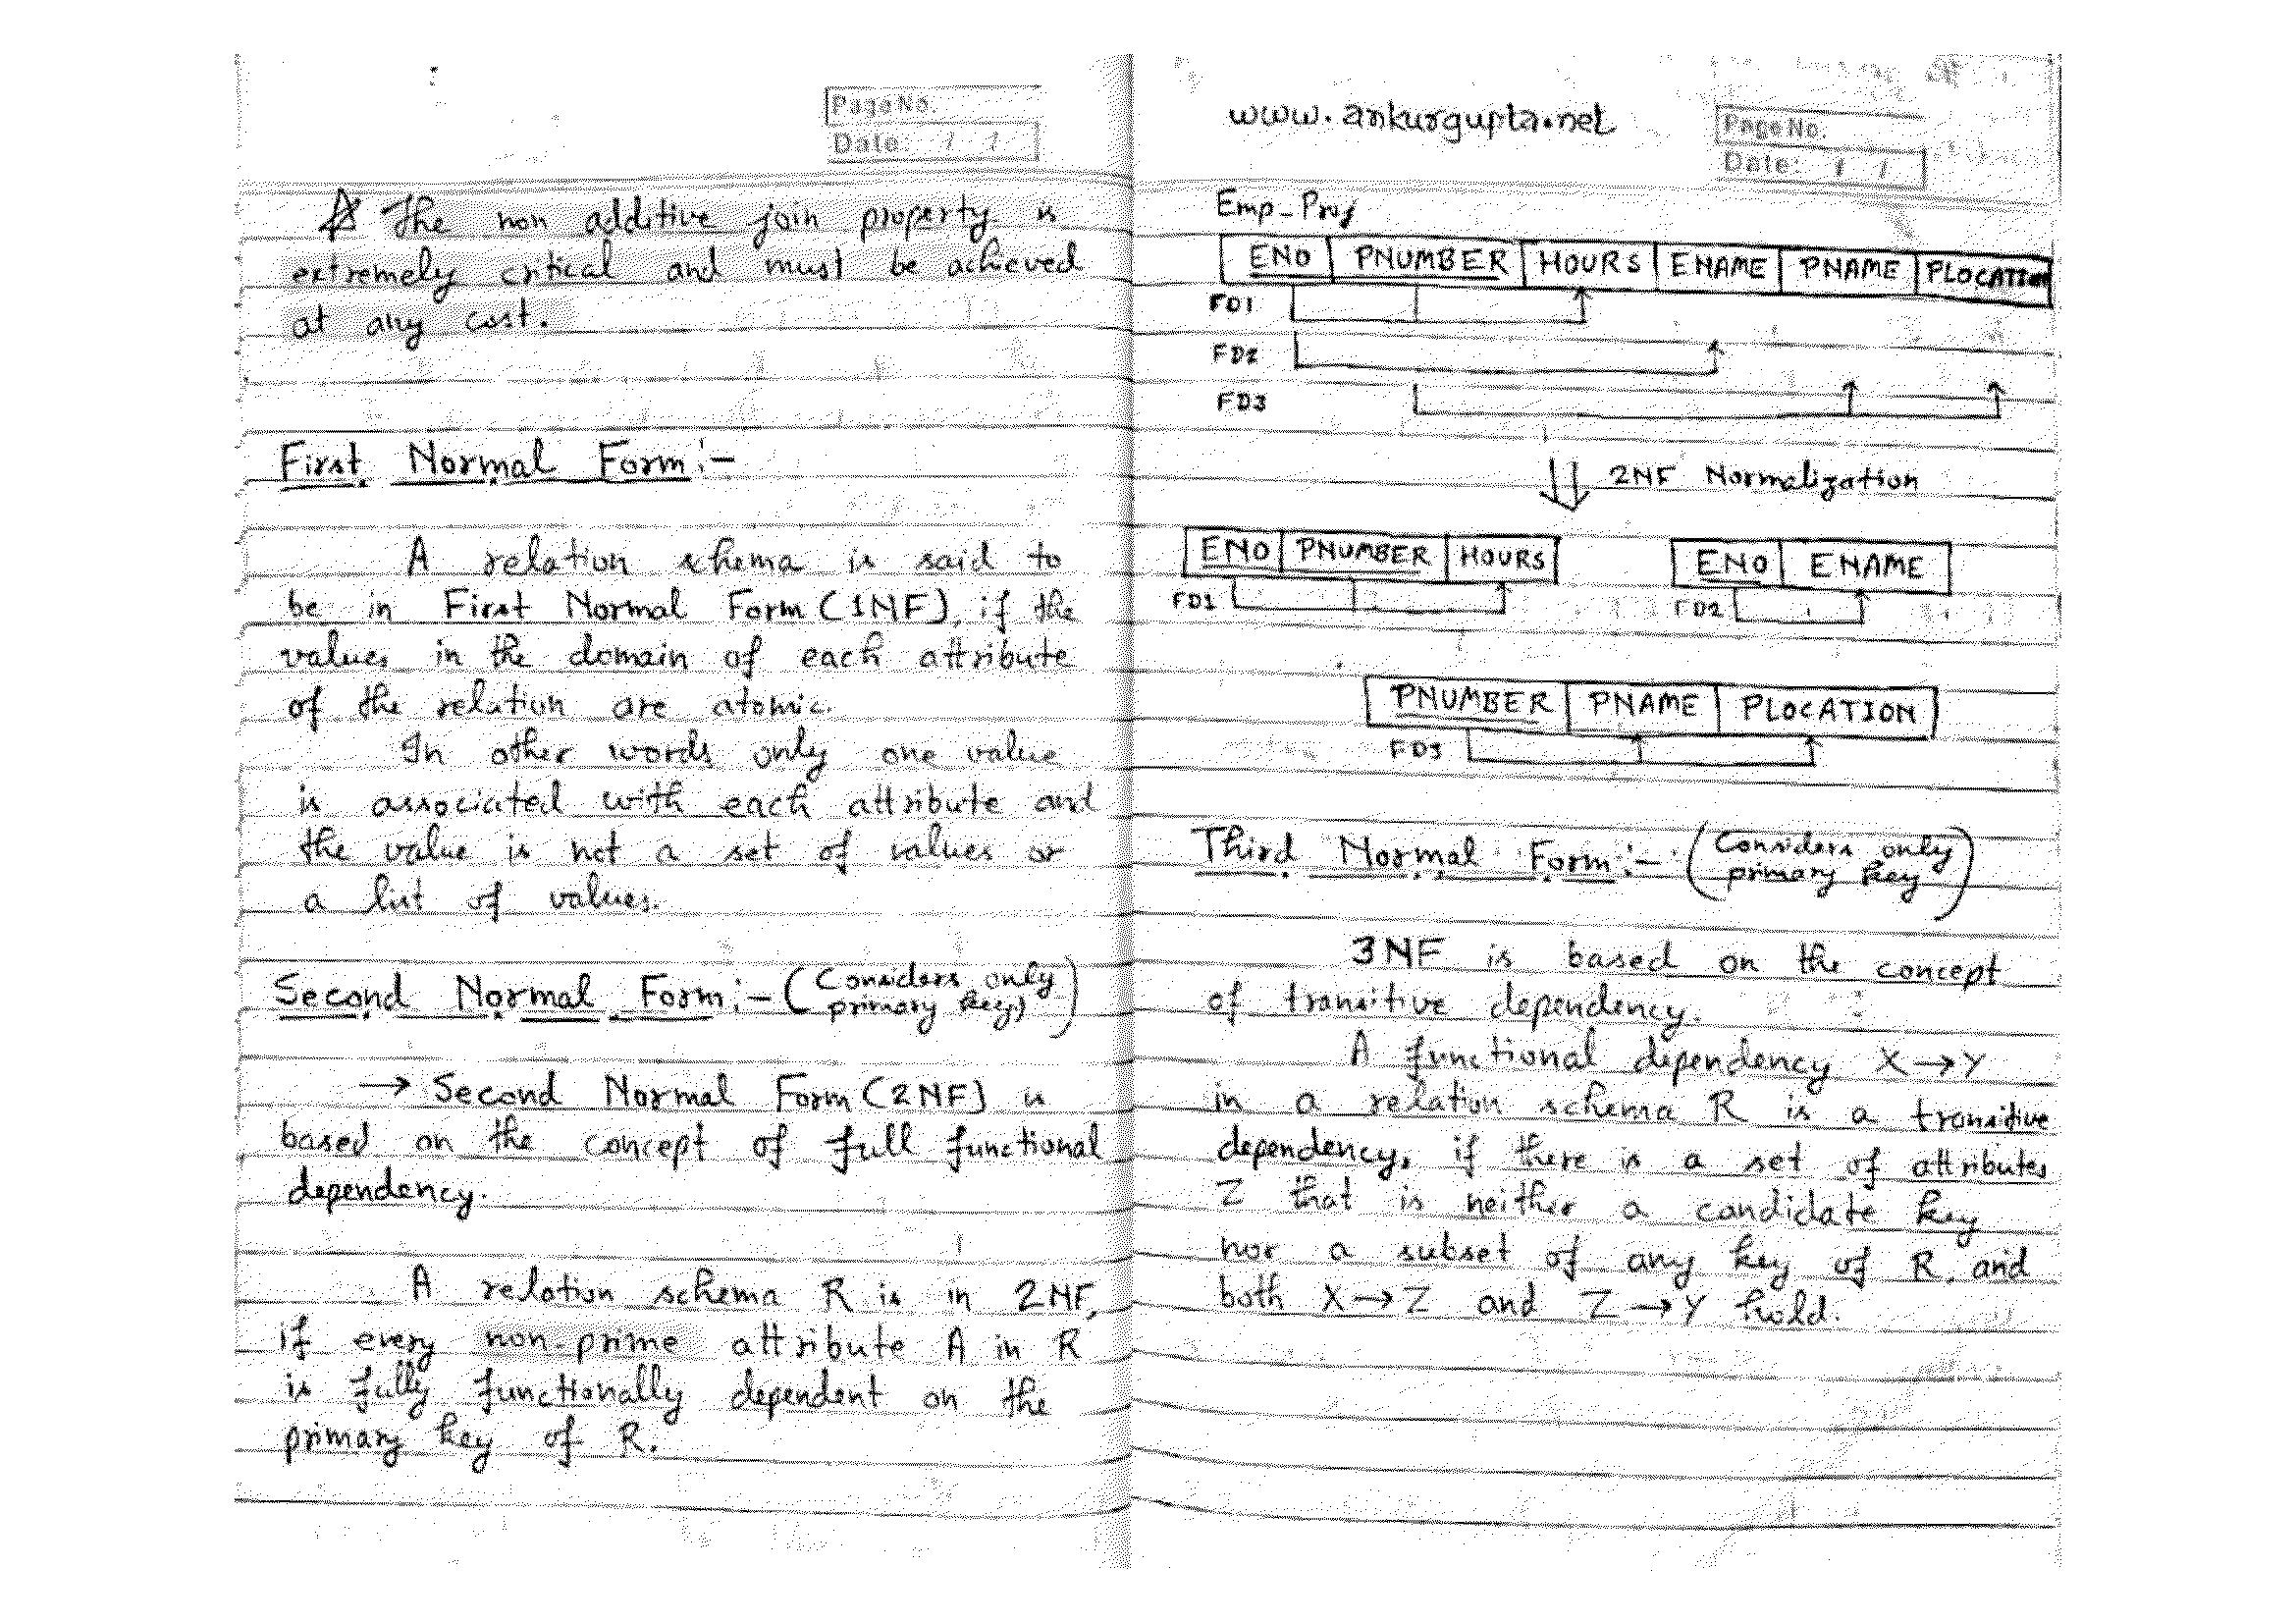 Page No.
Date: / /
☆ The non additive join property is
extremely critical and must be achieved
at any cost.
First Normal Form:-
A relation schema is said to
be in First Normal Form (1NF), if the
values in the domain of each attribute
of the relation are atomic.
In other words only one value
is associated with each attribute and
the value is not a set of values or
a list of values.
Second Normal Form:- (Considers only
primary key)
→ Second Normal Form (2NF) is
based on the concept of full functional
dependency.
A relation schema R is in 2NF,
if every non-prime attribute A in R
is fully functionally dependent on the
primary key of R.
www.ankurgupta.net
Page No.
Date: / /
Emp_Proj
ENO PNUMBER HOURS ENAME PNAME PLOCATION
FD1
FD2
FD3
2NF Normalization
ENO PNUMBER HOURS
FD1
ENO ENAME
FD2
PNUMBER PNAME PLOCATION
FD3
Third Normal Form:- (Considers only
primary key)
3NF is based on the concept
of transitive dependency.
A functional dependency X→Y
in a relation schema R is a transitive
dependency, if there is a set of attributes
Z that is neither a candidate key
nor a subset of any key of R, and
both X→Z and Z→Y hold.